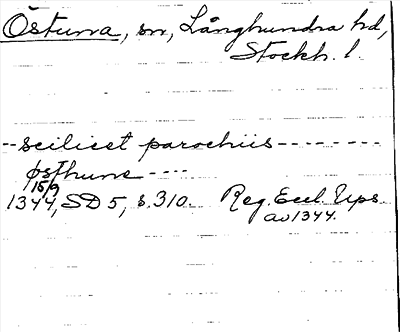 Östuna, sn, Långhundra hd,
Stockh. l.
-- scilicet parochiis --------
østhune ----
15/9
1344, SD 5, s. 310. Reg. Eccl. Ups.
av 1344.